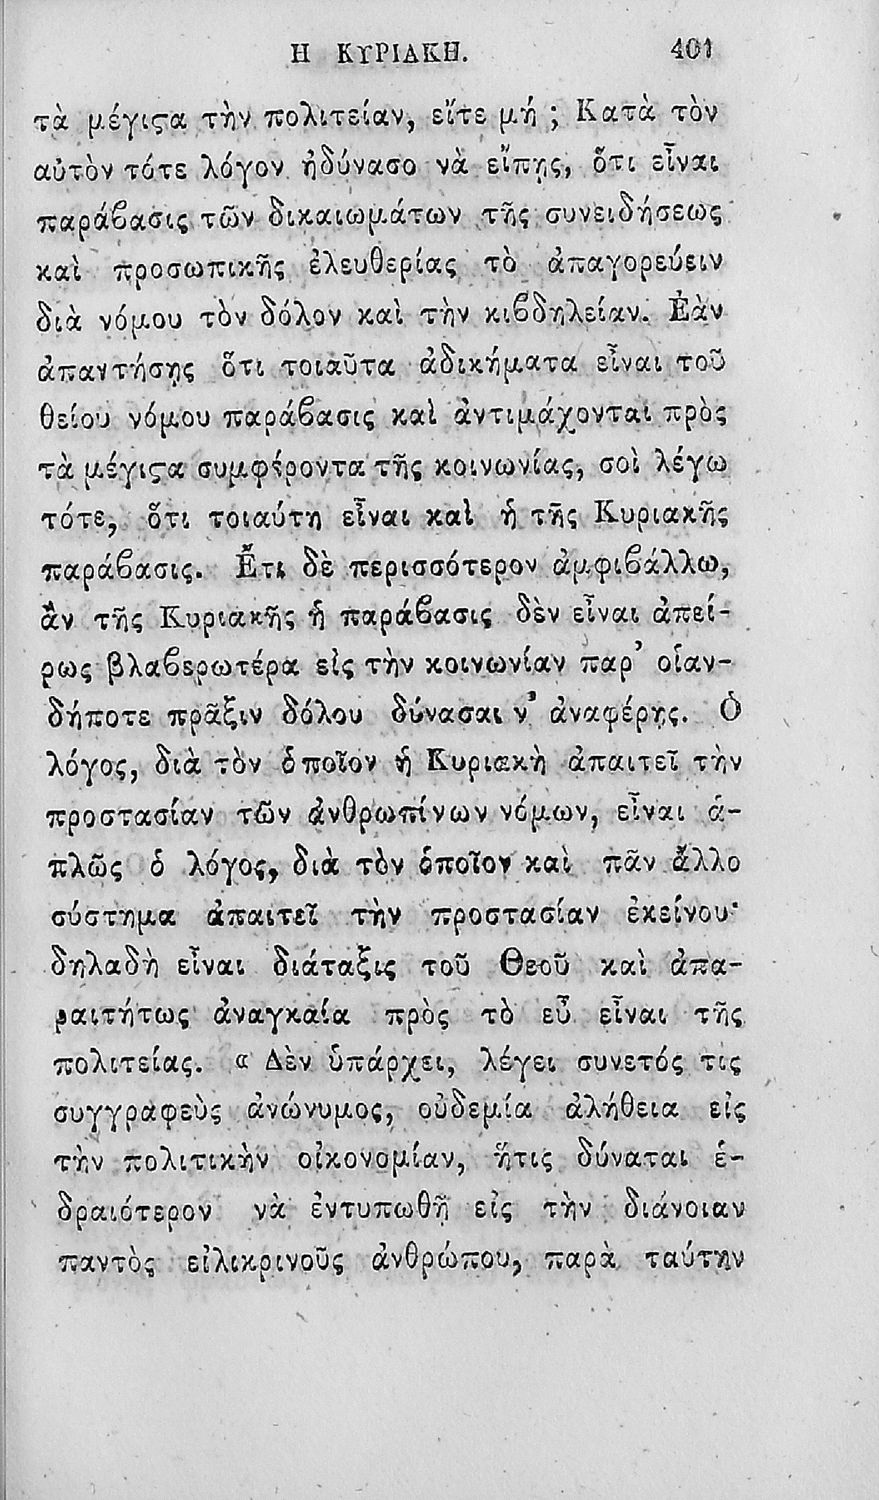 Η ΚΥΡΙΑΚΗ. 401
τὰ μέγιϛα τὴν πολιτείαν, εἴτε μή ; Κατὰ τὸν
αὐτὸν τότε λόγον ἠδύνασο νὰ εἴπῃς, ὅτι εἶναι
παράϐασις τῶν δικαιωμάτων τῆς συνειδήσεως
καὶ προσωπικῆς ἐλευθερίας τὸ ἀπαγορεύειν
διὰ νόμου τὸν δόλον καὶ τὴν κιϐδηλείαν. Ἐὰν
ἀπαντήσῃς ὅτι τοιαῦτα ἀδικήματα εἶναι τοῦ
θείου νόμου παράϐασις καὶ ἀντιμάχονται πρὸς
τὰ μέγιϛα συμφέροντα τῆς κοινωνίας, σοὶ λέγω
τότε, ὅτι τοιαύτη εἶναι καὶ ἡ τῆς Κυριακῆς
παράϐασις. Ἔτι δὲ περισσότερον ἀμφιϐάλλω,
ἂν τῆς Κυριακῆς ἡ παράϐασις δὲν εἶναι ἀπεί-
ρως βλαϐερωτέρα εἰς τὴν κοινωνίαν παρ' οἱαν-
δήποτε πρᾶξιν δόλου δύνασαι ν' ἀναφέρῃς. Ὁ
λόγος, διὰ τὸν ὁποῖον ἡ Κυριακὴ ἀπαιτεῖ τὴν
προστασίαν τῶν ἀνθρωπίνων νόμων, εἶναι ἁ-
πλῶς ὁ λόγος, διὰ τὸν ὁποῖον καὶ πᾶν ἄλλο
σύστημα ἀπαιτεῖ τὴν προστασίαν ἐκείνου·
δηλαδὴ εἶναι διάταξις τοῦ Θεοῦ καὶ ἀπα-
ραιτήτως ἀναγκαία πρὸς τὸ εὖ εἶναι τῆς
πολιτείας. « Δὲν ὑπάρχει, λέγει συνετός τις
συγγραφεὺς ἀνώνυμος, οὐδεμία ἀλήθεια εἰς
τὴν πολιτικὴν οἰκονομίαν, ἥτις δύναται ἑ-
δραιότερον νὰ ἐντυπωθῇ εἰς τὴν διάνοιαν
παντὸς εἰλικρινοῦς ἀνθρώπου, παρὰ ταύτην